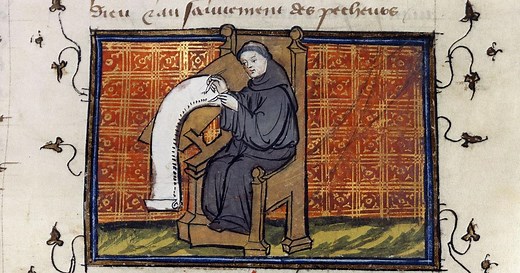 Dieu ⁊ au sauuement des pecheurs